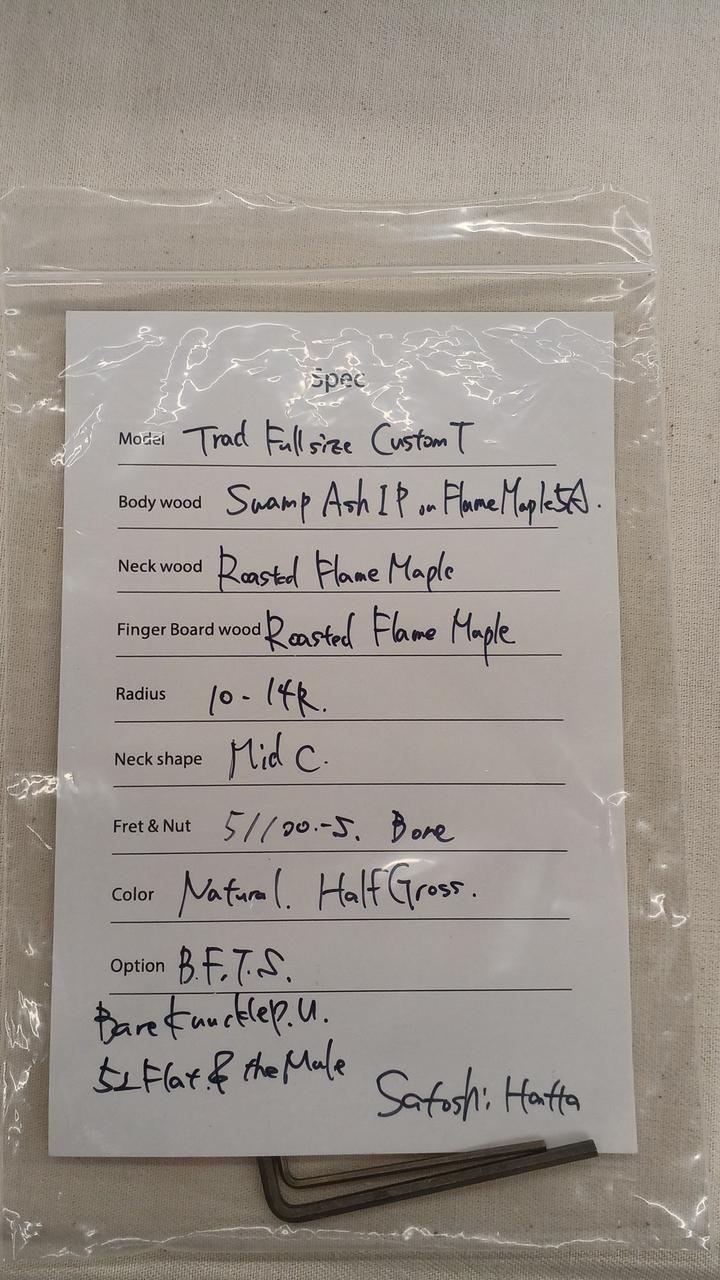 Spec
Model Trad Full size Custom T
Body wood Swamp Ash 1P on Flame Maple 5A.
Neck wood Roasted Flame Maple
Finger Board wood Roasted Flame Maple
Radius 10-14R.
Neck shape Mid C.
Fret & Nut 51100.-S. Bone
Color Natural. Half Gross.
Option B.F.T.S.
Bare Knuckle P.U.
52 Flat. & the Mule
Satoshi Hatta